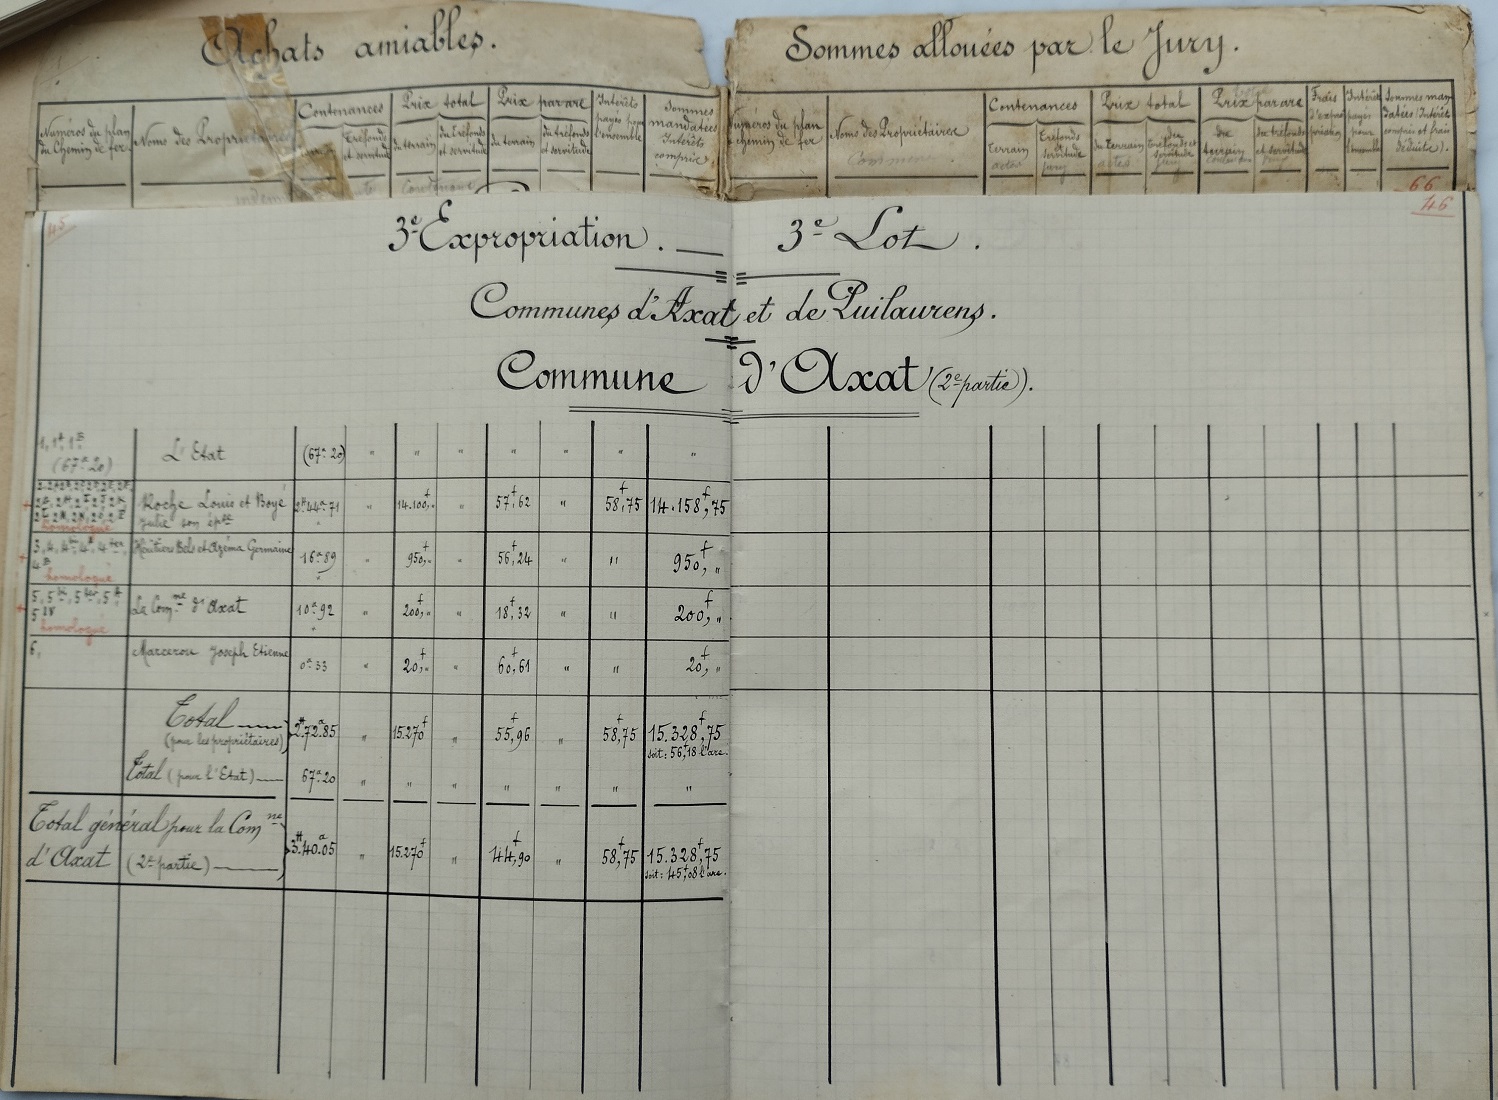 Achats amiables.
Sommes allouées par le Jury.
Numéros du plan du Chemin de fer
Noms des Propriétaires
Contenances
Terrain
Tréfonds et servitude
Prix total
du terrain
du tréfonds et servitude
Prix par are
du terrain
du tréfonds et servitude
Intérêts payés pour l'ensemble
Sommes mandatées Intérêts compris
Numéros du plan chemin de fer
Noms des Propriétaires
Contenances
Terrain
Tréfonds et servitude
Prix total
du Terrain
Prix par are
du terrain
du tréfonds et servitude
Frais d'expropriation
Intérêts payés pour l'ensemble
Sommes mandatées (Intérêts compris et frais déduits).
45
66
46
3e Expropriation. — 3e Lot.
Communes d'Axat et de Puilaurens.
Commune d'Axat (2e partie).
(67a 20) L'Etat (67a 20) " " " " " " "
Roche Louis et Boyé Julie son épse 2H44a71 " 14.100f," " 57f,62 " 58f,75 14.158f,75
homologué
Héritiers Bels et Azéma Germaine 16a89 " 950f," " 56f,24 " " 950f,"
homologué
La Comne d'Axat 10a92 " 200f," " 18f,32 " " 200f,"
homologué
6, Marcerou Joseph Etienne 0a33 " 20f," " 60f,61 " " 20f,"
Total (pour les propriétaires) 2H.72a.85 " 15.270f " 55f,96 " 58f,75 15.328f,75
soit: 56f,18 l'are.
Total (pour l'Etat) 67a20 " " " " " " "
Total général pour la Comne
d'Axat (2e partie) 3H.40a.05 " 15.270f " 44f,90 " 58f,75 15.328f,75
soit: 45f,08 l'are.